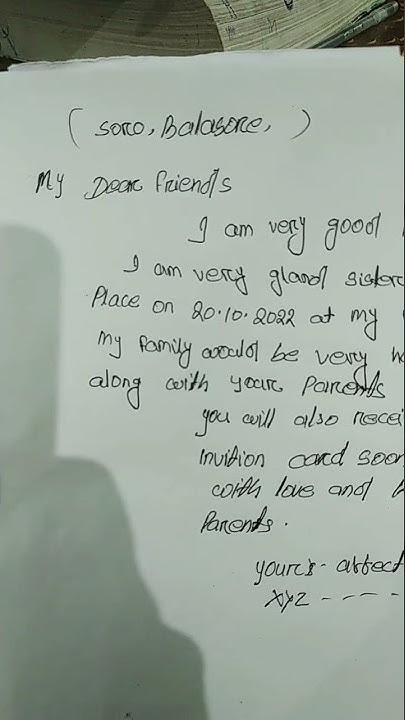 (Soro, Balasore,)
My Dear friends
I am very good
I am very gland sister
Place on 20.10.2022 at my
my family would be very
along with your Parents
you will also recei
Invition card soon
with love and
Parents.
your's affect
xyz ----